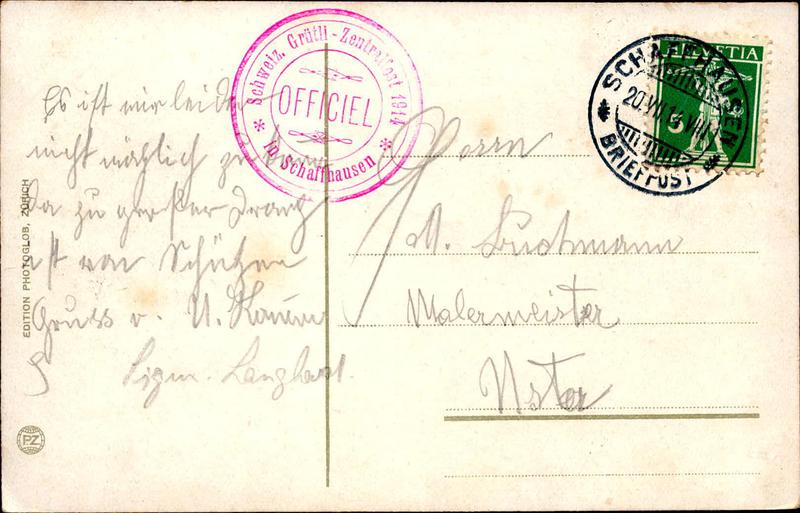 Schweiz. Grütli-Zentralfest 1914
OFFICIEL
in Schaffhausen
HELVETIA
5
SCHAFFHAUSEN
20.VII.14.VIII
BRIEFPOST
Es ist mir leider
nicht möglich zu
da zu großer Drang
ist von Schützen
Gruss v. U.
Herrn
M.
Malermeister
Uster
EDITION PHOTOGLOB, ZÜRICH
PZ